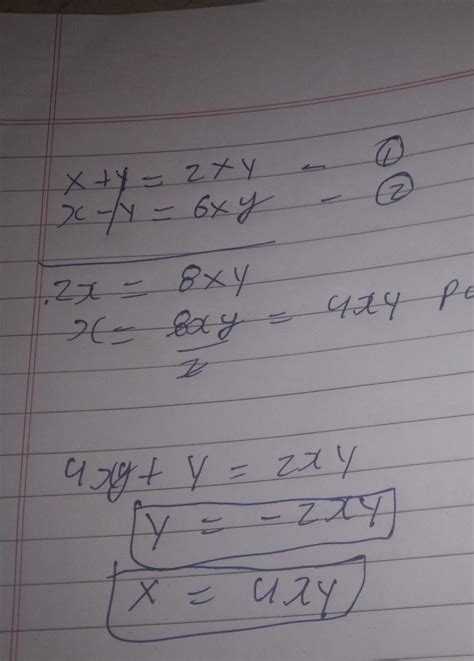 x+y = 2xy - ①
x-y = 6xy - ②
2x = 8xy
x = 8xy/2 = 4xy
4xy + y = 2xy
y = -2xy
x = 4xy